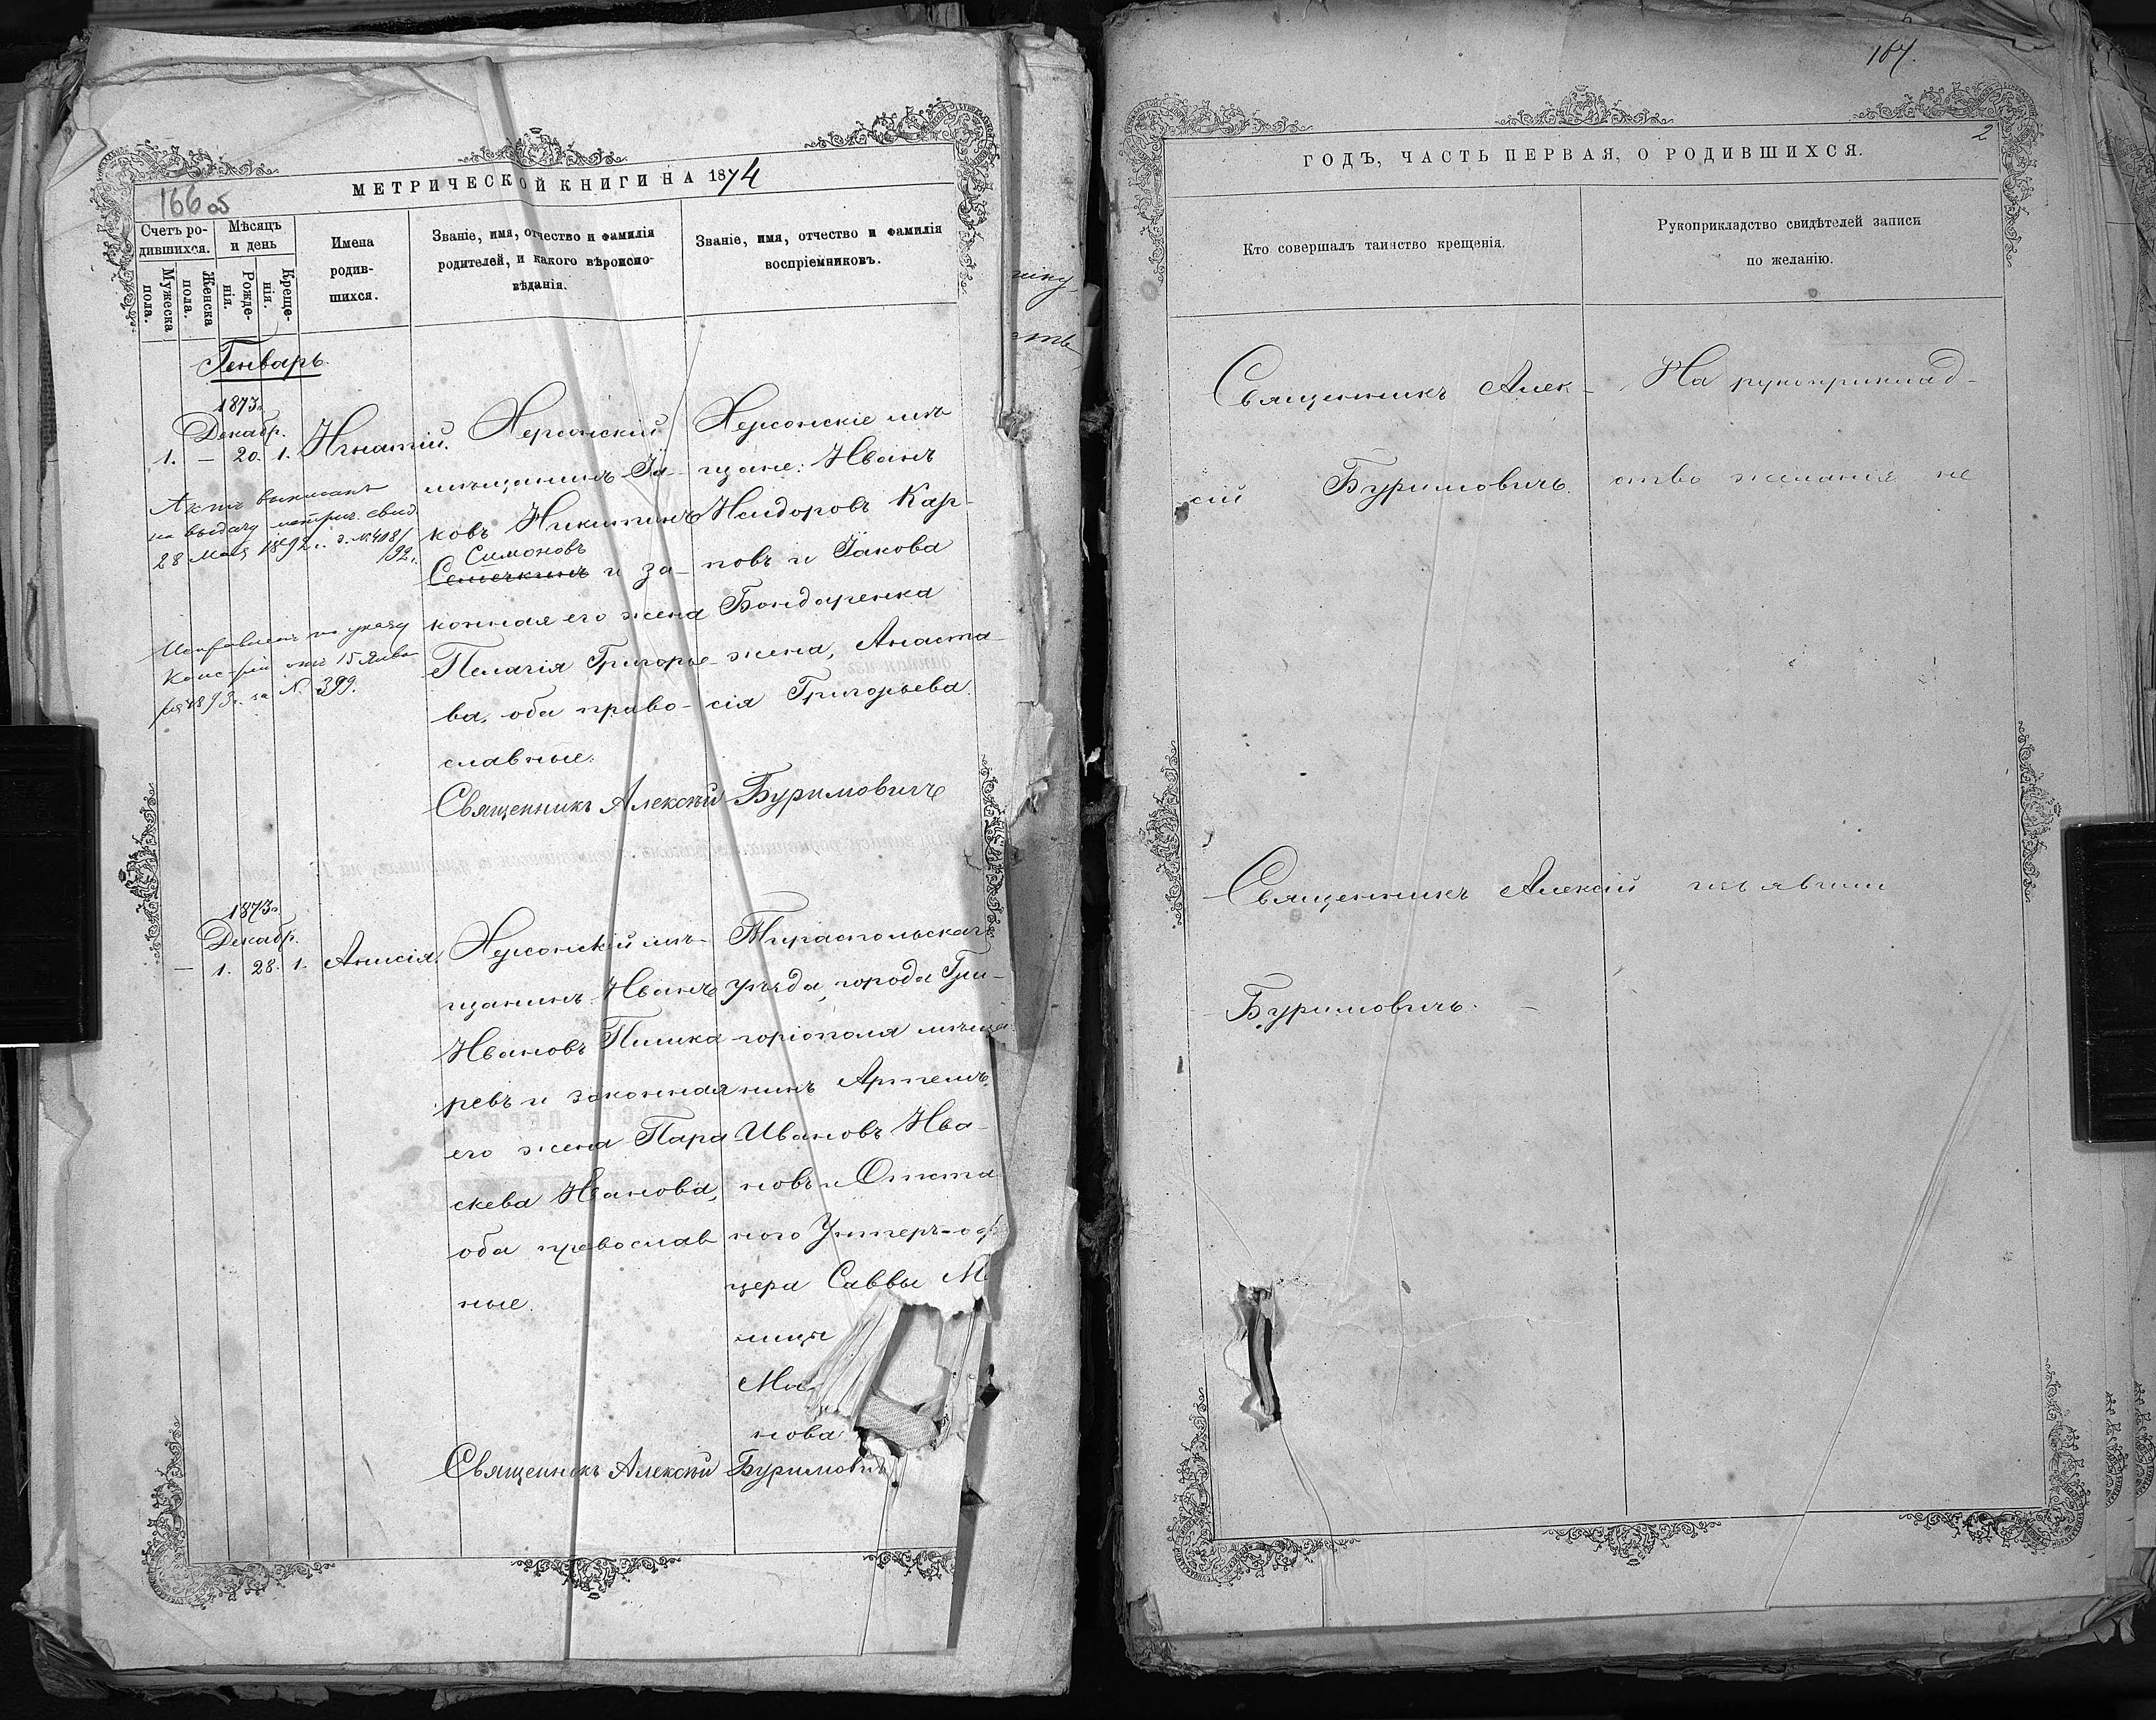 МЕТРИЧЕСКОЙ КНИГИ НА 1874
166 об
Счетъ ро-
дившихся.
Мужеска
пола.
Женска
пола.
Мѣсяцъ
и день
Рожде-
нія.
Креще-
нія.
Имена
родив-
шихся.
Званіе, имя, отчество и фамилія
родителей, и какого вѣроиспо-
вѣданія.
Званіе, имя, отчество и фамилія
воспріемниковъ.
Генварь.
1873г.
Декабр.
1. — 20. 1. Игнатій.
Херсонскій
мѣщанинъ Іа-
ковъ Никитинъ
Симоновъ
и за-
конная его жена
Пелагія Григорье-
ва, оба право-
славные.
Херсонскіе мѣ-
щане: Иванъ
Исидоровъ Кар-
повъ и Іакова
Бондаренка
жена, Анаста-
сія Григорьева.
Священникъ Алексѣй Буримовичъ
Актъ выписанъ
на выдачу метрич. свид.
28 Мая 1892 г. з. №4081
/92 г.
Исправлено по указу
Конс-ріи отъ 15 Янва-
ря 1893 г. за № 399.
1873г.
Декабр.
— 1. 28. 1. Анисія.
Херсонскій мѣ-
щанинъ Иванъ
Ивановъ Пишка-
ревъ и законная
его жена Пара-
скева Иванова,
оба православ-
ные.
Тираспольскаго
уѣзда, города Гри-
горіополя мѣща-
нинъ Артемъ
Ивановъ Ива-
новъ и Отста
ного Унтеръ-оф
цера Саввы М
лицы
Ми
нова
Священникъ Алексѣй Буримовичъ
167.
2
ГОДЪ, ЧАСТЬ ПЕРВАЯ, О РОДИВШИХСЯ.
Кто совершалъ таинство крещенія.
Рукоприкладство свидѣтелей записи
по желанію.
Священникъ Алек-
сій Буримовичъ.
На рукоприклад-
ство желанія не
Священникъ Алексій
Буримовичъ.
изъявили